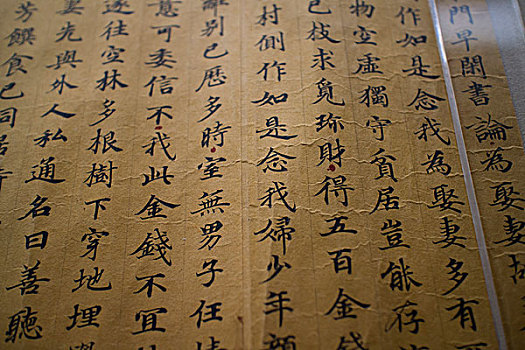 門早閉書論為娶妻故
作如是念我為娶妻多有
物空虛獨守貧居豈能存
已枝求覓珎財得五百金錢
村側作如是念我婦少年顏
離別已歷多時室無男子任情
意可委信不我此金錢不宜
遂往空林多根樹下穿地埋
妻先與外人私通名曰善聽
芳饌食已同居